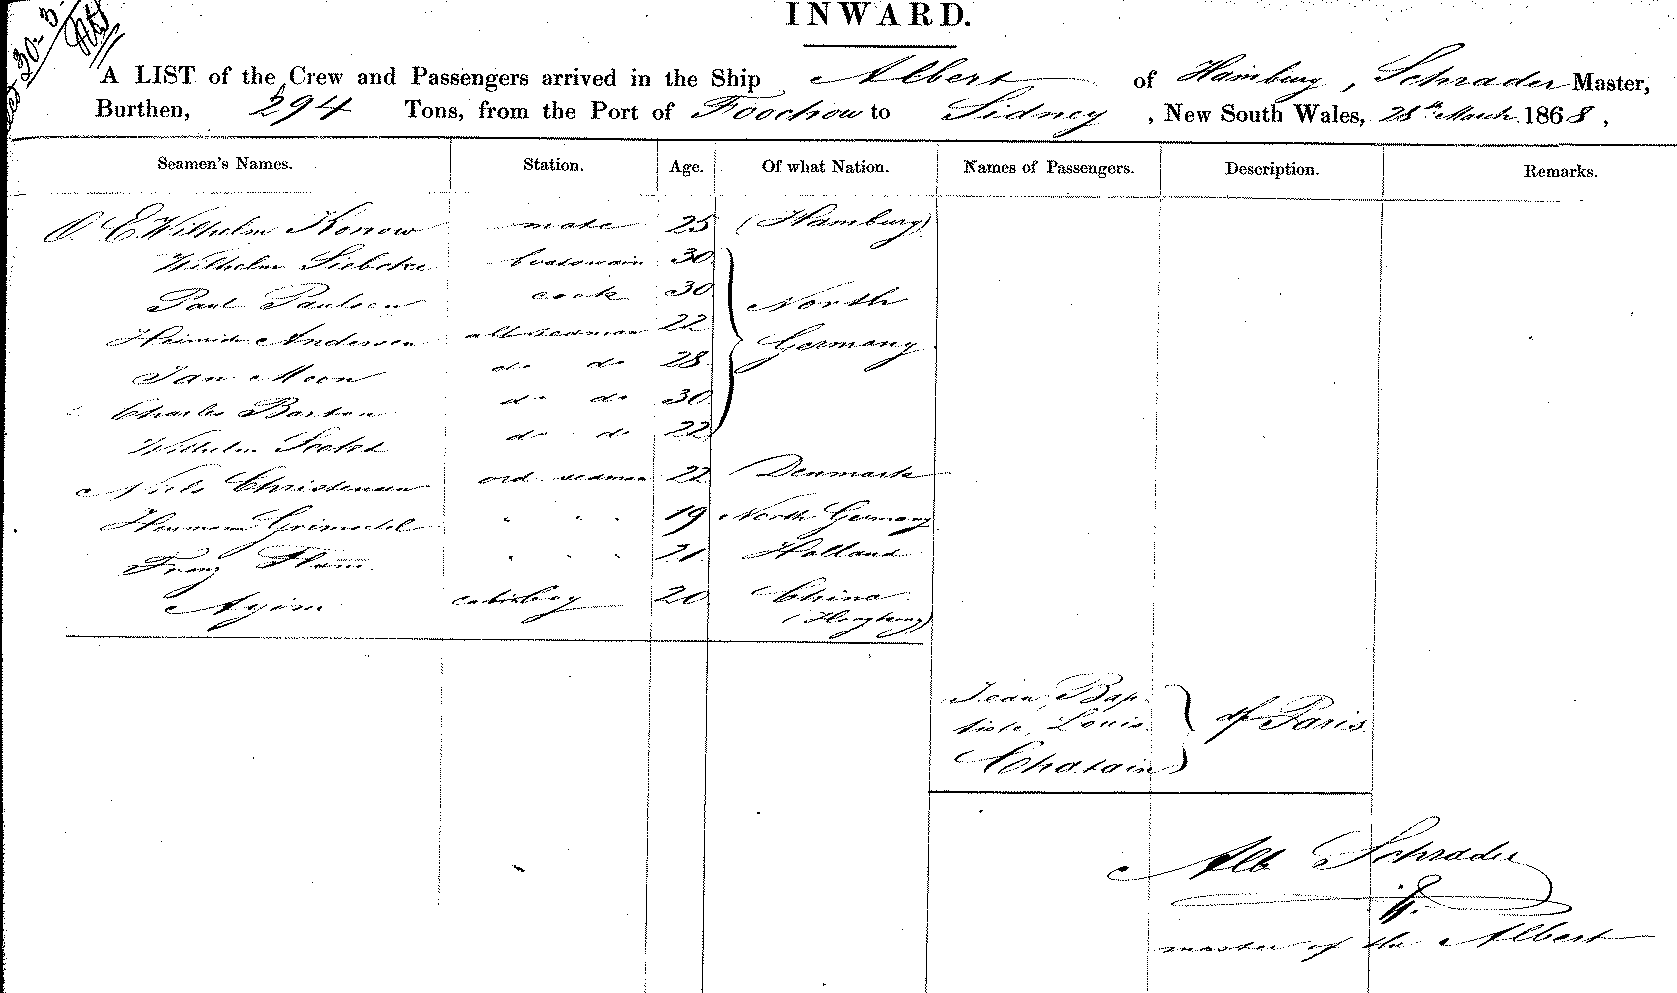 INWARD.
20-3-
A LIST of the Crew and Passengers arrived in the Ship Albert of Hamburg, Schrader Master,
Burthen, 294 Tons, from the Port of Foochow to Sidney, New South Wales, 28th March 1868,
Seamen's Names. Station. Age. Of what Nation. Names of Passengers. Description. Remarks.
E Wilhelm Konow mate 25 (Hamburg)
Wilhelm Siebcke boatswain 30
Paul Paulsen cook 30 North
Heinrich Andersen able seaman 22 Germany
Jan Moon do do 28
Charles Barton do do 30
Wilhelm do do 22
Niels Christensen ord seaman 22 Denmark
Hermann Grimstel " " " 19 North Germany
Franz Flam " " " 21 Holland
Ayim cabinboy 20 China
(Hongkong)
Jean, Bap-
tiste, Louis of Paris
Chatain
Alb Schrader
master of the Albert